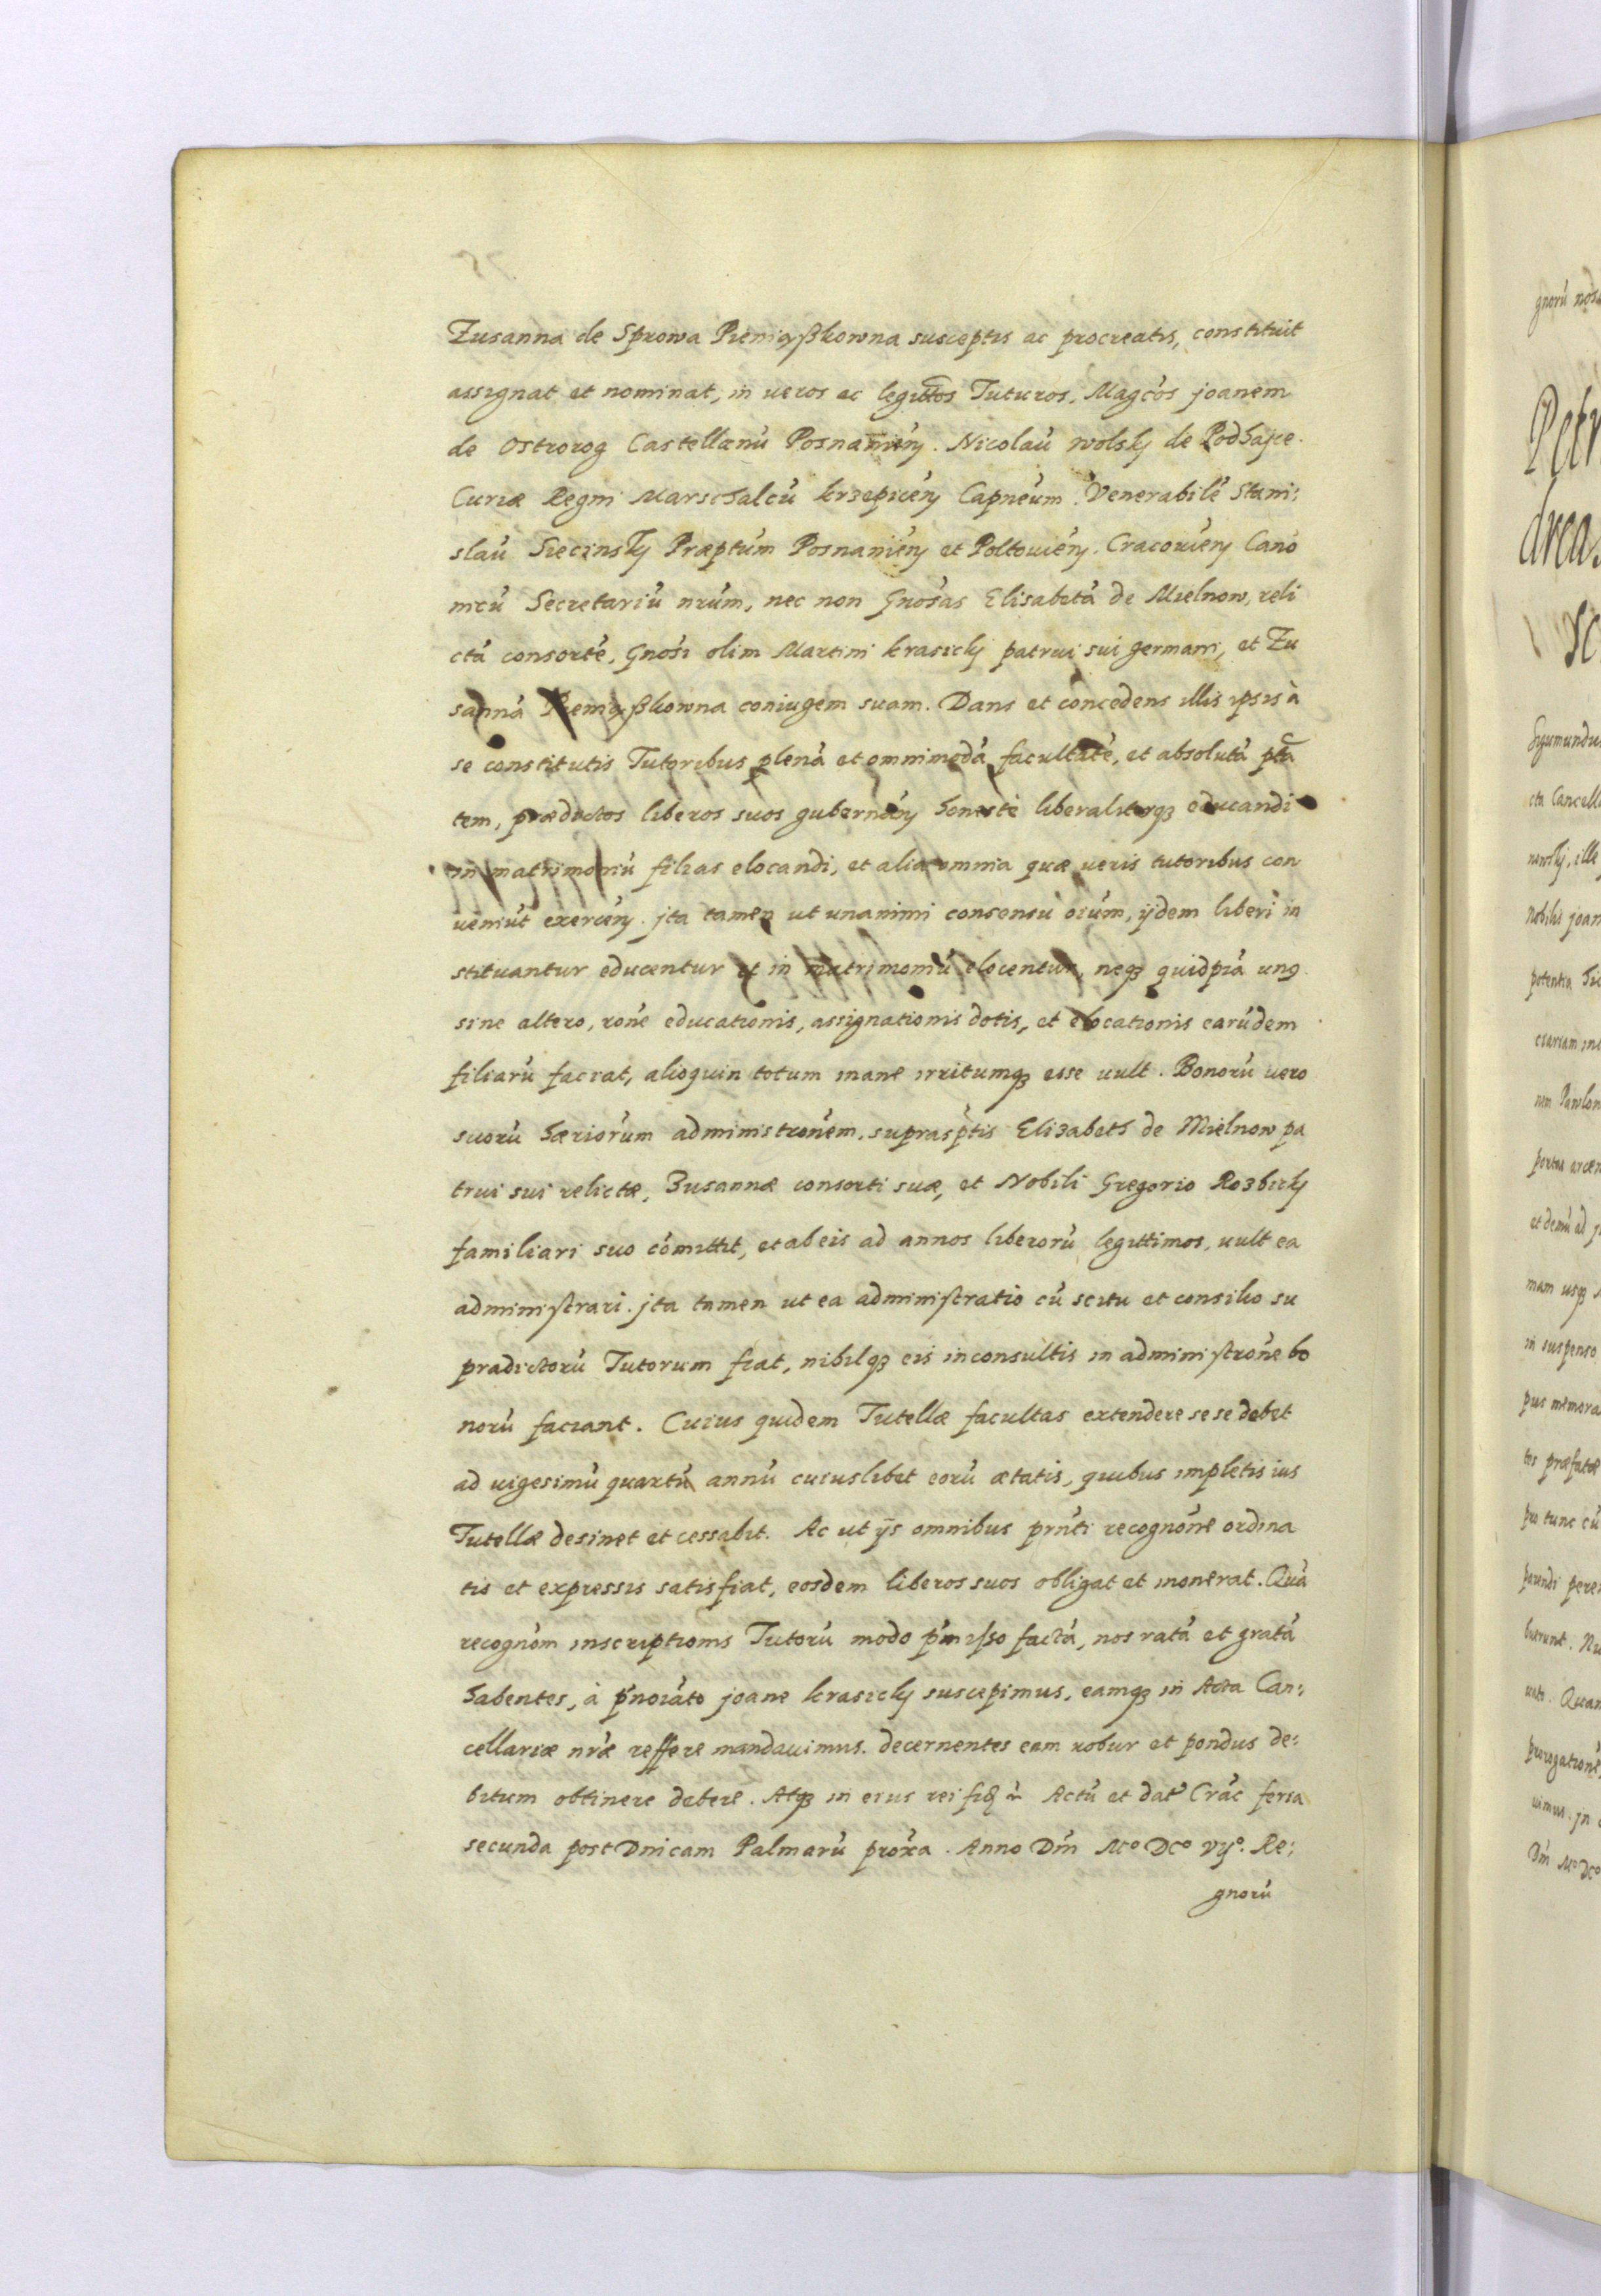 Zusanna de Sprowa Pieniąszkowna susceptis ac procreatis, constituit
assignat et nominat, in ueros ac legittos Tutores, Magcos joanem
de Ostrorog Castellanū Posnanień. Nicolaū wolsky de Podhajce.
Curiæ Regni Marschalcū krzepiceń Capneum. Venerabilē Stani:
slaū Siecinsky Præptum Posnanień et Poltouień. Cracouień Cano
nicū Secretariū nrum, nec non Gnosas Elisabetā de Mielnow, reli
ctā consortē, Gnosi olim Martini krasicky patrui sui germani, et Zu
sannā Pieniąszkowna coniugem suam. Dans et concedens illis ipsis à
se constitutis Tutoribus plenā et omnimodā facultatē, et absolutā ptā
tem, prædictos liberos suos gubernań honestè liberaliterqꝫ educandi
in matrimoniū filias elocandi, et alia omnia quæ ueris tutoribus con
ueniūt exerceń. jta tamen ut unanimi consensu oium, ijdem liberi in
stituantur educentur et in matrimoniū elocentur, neqꝫ quidpiā unꝯ
sine altero, rone educationis, assignationis dotis, et elocationis earūdem
filiarū faciat, alioquin totum inane irritumqꝫ esse uult. Bonorū uero
suorū hæriorum administronem, suprasptis Elizabeth de Mielnow pa
trui sui relictæ, Zusannæ consorti suæ, et Nobili Gregorio Rozbicky
familiari suo cōmittit, et ab eis ad annos liberorū legittimos, uult ea
administrari. jta tamen ut ea administratio cū scitu et consilio su
pradictorū Tutorum fiat, nihilqꝫ eis inconsultis in administrone bo
norū faciant. Cuius quidem Tutellæ facultas extendere sese debet
ad uigesimū quartū annū cuiuslibet eorū ætatis, quibus impletis ius
Tutellæ desinet et cessabit. Ac ut ijs omnibus prnti recognone ordina
tis et expressis satisfiat, eosdem liberos suos obligat et inonerat. Quā
recognom inscriptionis Tutorū modo pmisso factā, nos ratā et gratā
habentes, à pnoiato joane krasicky suscepimus, eamqꝫ in Acta Can:
cellariæ nræ reffere mandauimus. decernentes eam robur et pondus de:
bitum obtinere debere. Atqꝫ in eius rei fidꝫ Actū et dat Crac feria
secunda post Dnicam Palmarū proxa. Anno Dni Mo Dco vijo. Re:
gnorū